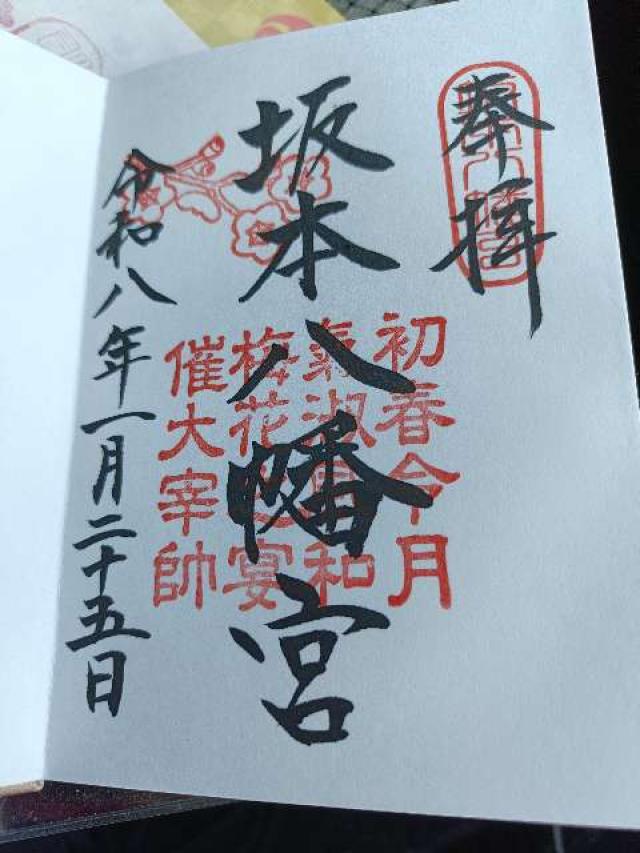 奉拝
坂本八幡宮
初春令月
氣淑風和
梅花之宴
催大宰帥
令和八年一月二十五日